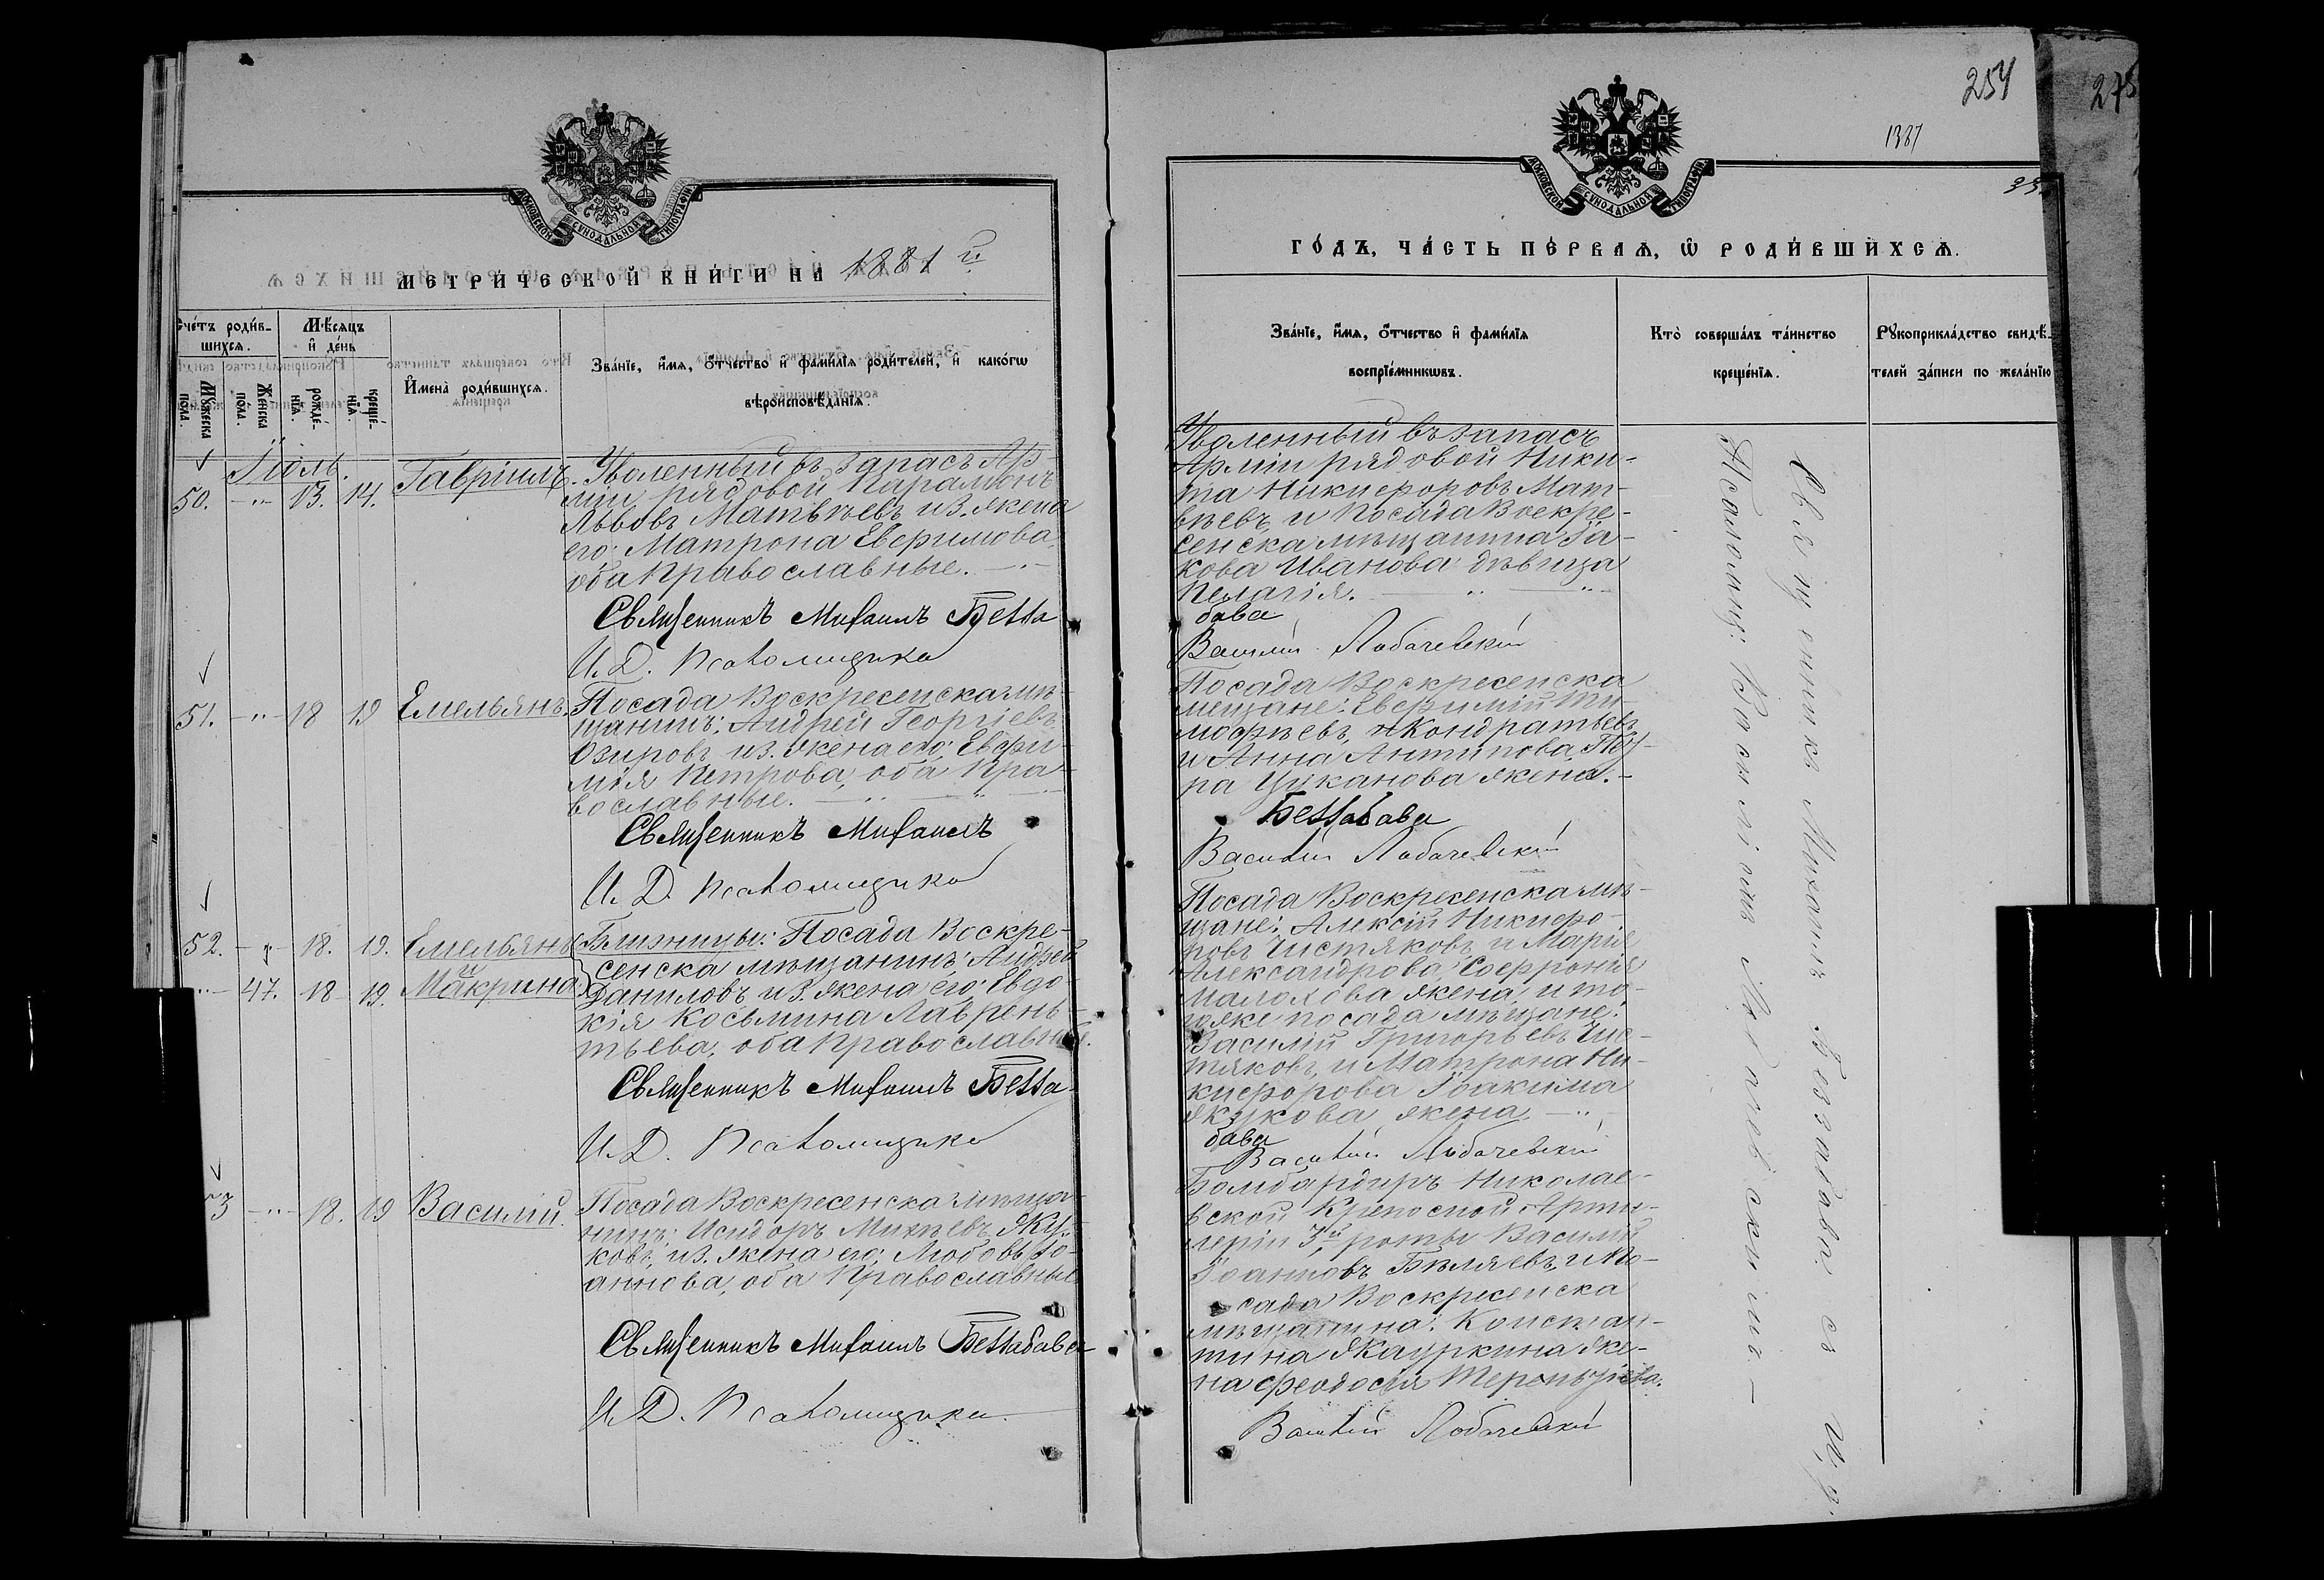 МОСКОВСКОЙ СѴНОДАЛЬНОЙ ТИПОГРАФІИ
МЕТРИ́ЧЕСКОЙ КНИ́ГИ НА 1881 й
Сче́тъ роди́в-
шихсѧ.
Мѣ́сѧцъ
и҆ де́нь
Мꙋ́жеска
по́ла.
Же́нска
по́ла.
рожде́-
нїѧ.
креще́-
нїѧ.
И҆мена̀ роди́вшихсѧ.
Зва́нїе, и҆́мѧ, ѻ҆́тчество и҆ фами́лїѧ роди́телей, и҆ како́гѡ
вѣроисповѣ́данїѧ.
Іюль.
50. -"- 13. 14. Гавріилъ.
Уволенный въ запасъ Ар-
міи рядовой Парамонъ
Львовъ Матвѣевъ и з. жена
его: Матрона Евфимова,
оба Православные.
Священникъ Михаилъ Безза
И. Д. Псаломщика
51. -"- 18 19 Емельянъ.
Посада Воскресенска мѣ-
щанинъ: Андрей Георгіевъ
Озировъ и з. жена его: Евфи-
мія Петрова, оба Пра-
вославные.
Священникъ Михаилъ
И. Д. Псаломщика
52. -"- 18. 19. Емельянъ
и
-"- 47. 18 19. Макрина
Близницы: Посада Воскре-
сенска мѣщанинъ: Андрей
Даниловъ и з. жена его: Евдо-
кія Косьмина Лаврень-
тьева, оба Православные.
Священникъ Михаилъ Безза-
И. Д. Псаломщика
53 -"- 18. 19 Василій.
Посада Воскресенска мѣща-
нинъ: Исидоръ Михѣевъ Жу-
ковъ, и з. жена его: Любовь Іо-
аннова, оба Православные
Священникъ Михаилъ Беззабава
И. Д. Псаломщика
254
275
1381
МОСКОВСКОЙ СѴНОДАЛЬНОЙ ТИПОГРАФІИ
ГО́ДЪ, ЧА́СТЬ ПЕ́РВАѦ, Ѡ҆ РОДИ́ВШИХСѦ.
Зва́нїе, и҆́мѧ, ѻ҆́тчество и҆ фами́лїѧ
воспрїе́мникѡвъ.
Кто̀ соверша́лъ та́инство
креще́нїѧ.
Рꙋкоприкла́дство свидѣ́-
телей за́писи по жела́нїю
Уволенный въ запасъ
Арміи рядовой Ники-
та Никифоровъ Мат-
вѣевъ, и Посада Воскре-
сенска мѣщанина Іа-
кова Иванова дѣвица
Пелагія.
бава
Василій Лобачевскій
Посада Воскресенска
мещане: Евфимій Ти-
мофѣевъ Кондратьевъ
и Анна Антипова,
ра Цуканова жена.
Беззабава
Василій Лобачевскій
Посада Воскресенска мѣ-
щане: Алексій Никифо-
ровъ Чистяковъ, и Марія
Александрова Софронія
Малахова жена, и то-
гоже посада мѣщане:
Василій Григорьевъ Чис-
тяковъ, и Матрона Ни-
кифорова Іоакима
Жукова жена.
бава
Василій Лобачевскій
Бомбардиръ Николае-
вской Крепосной Арти-
леріи 3й роты Василій
Іоанновъ Бѣляевъ, и По-
сада Воскресенска
мѣщанина: Констан-
тина Жауркина же-
на Феодосія Терентіева.
Василій Лобачевскій
Священникъ Михаилъ Беззабава съ И. д.
Псаломщ: Василіемъ Лобачевскимъ.